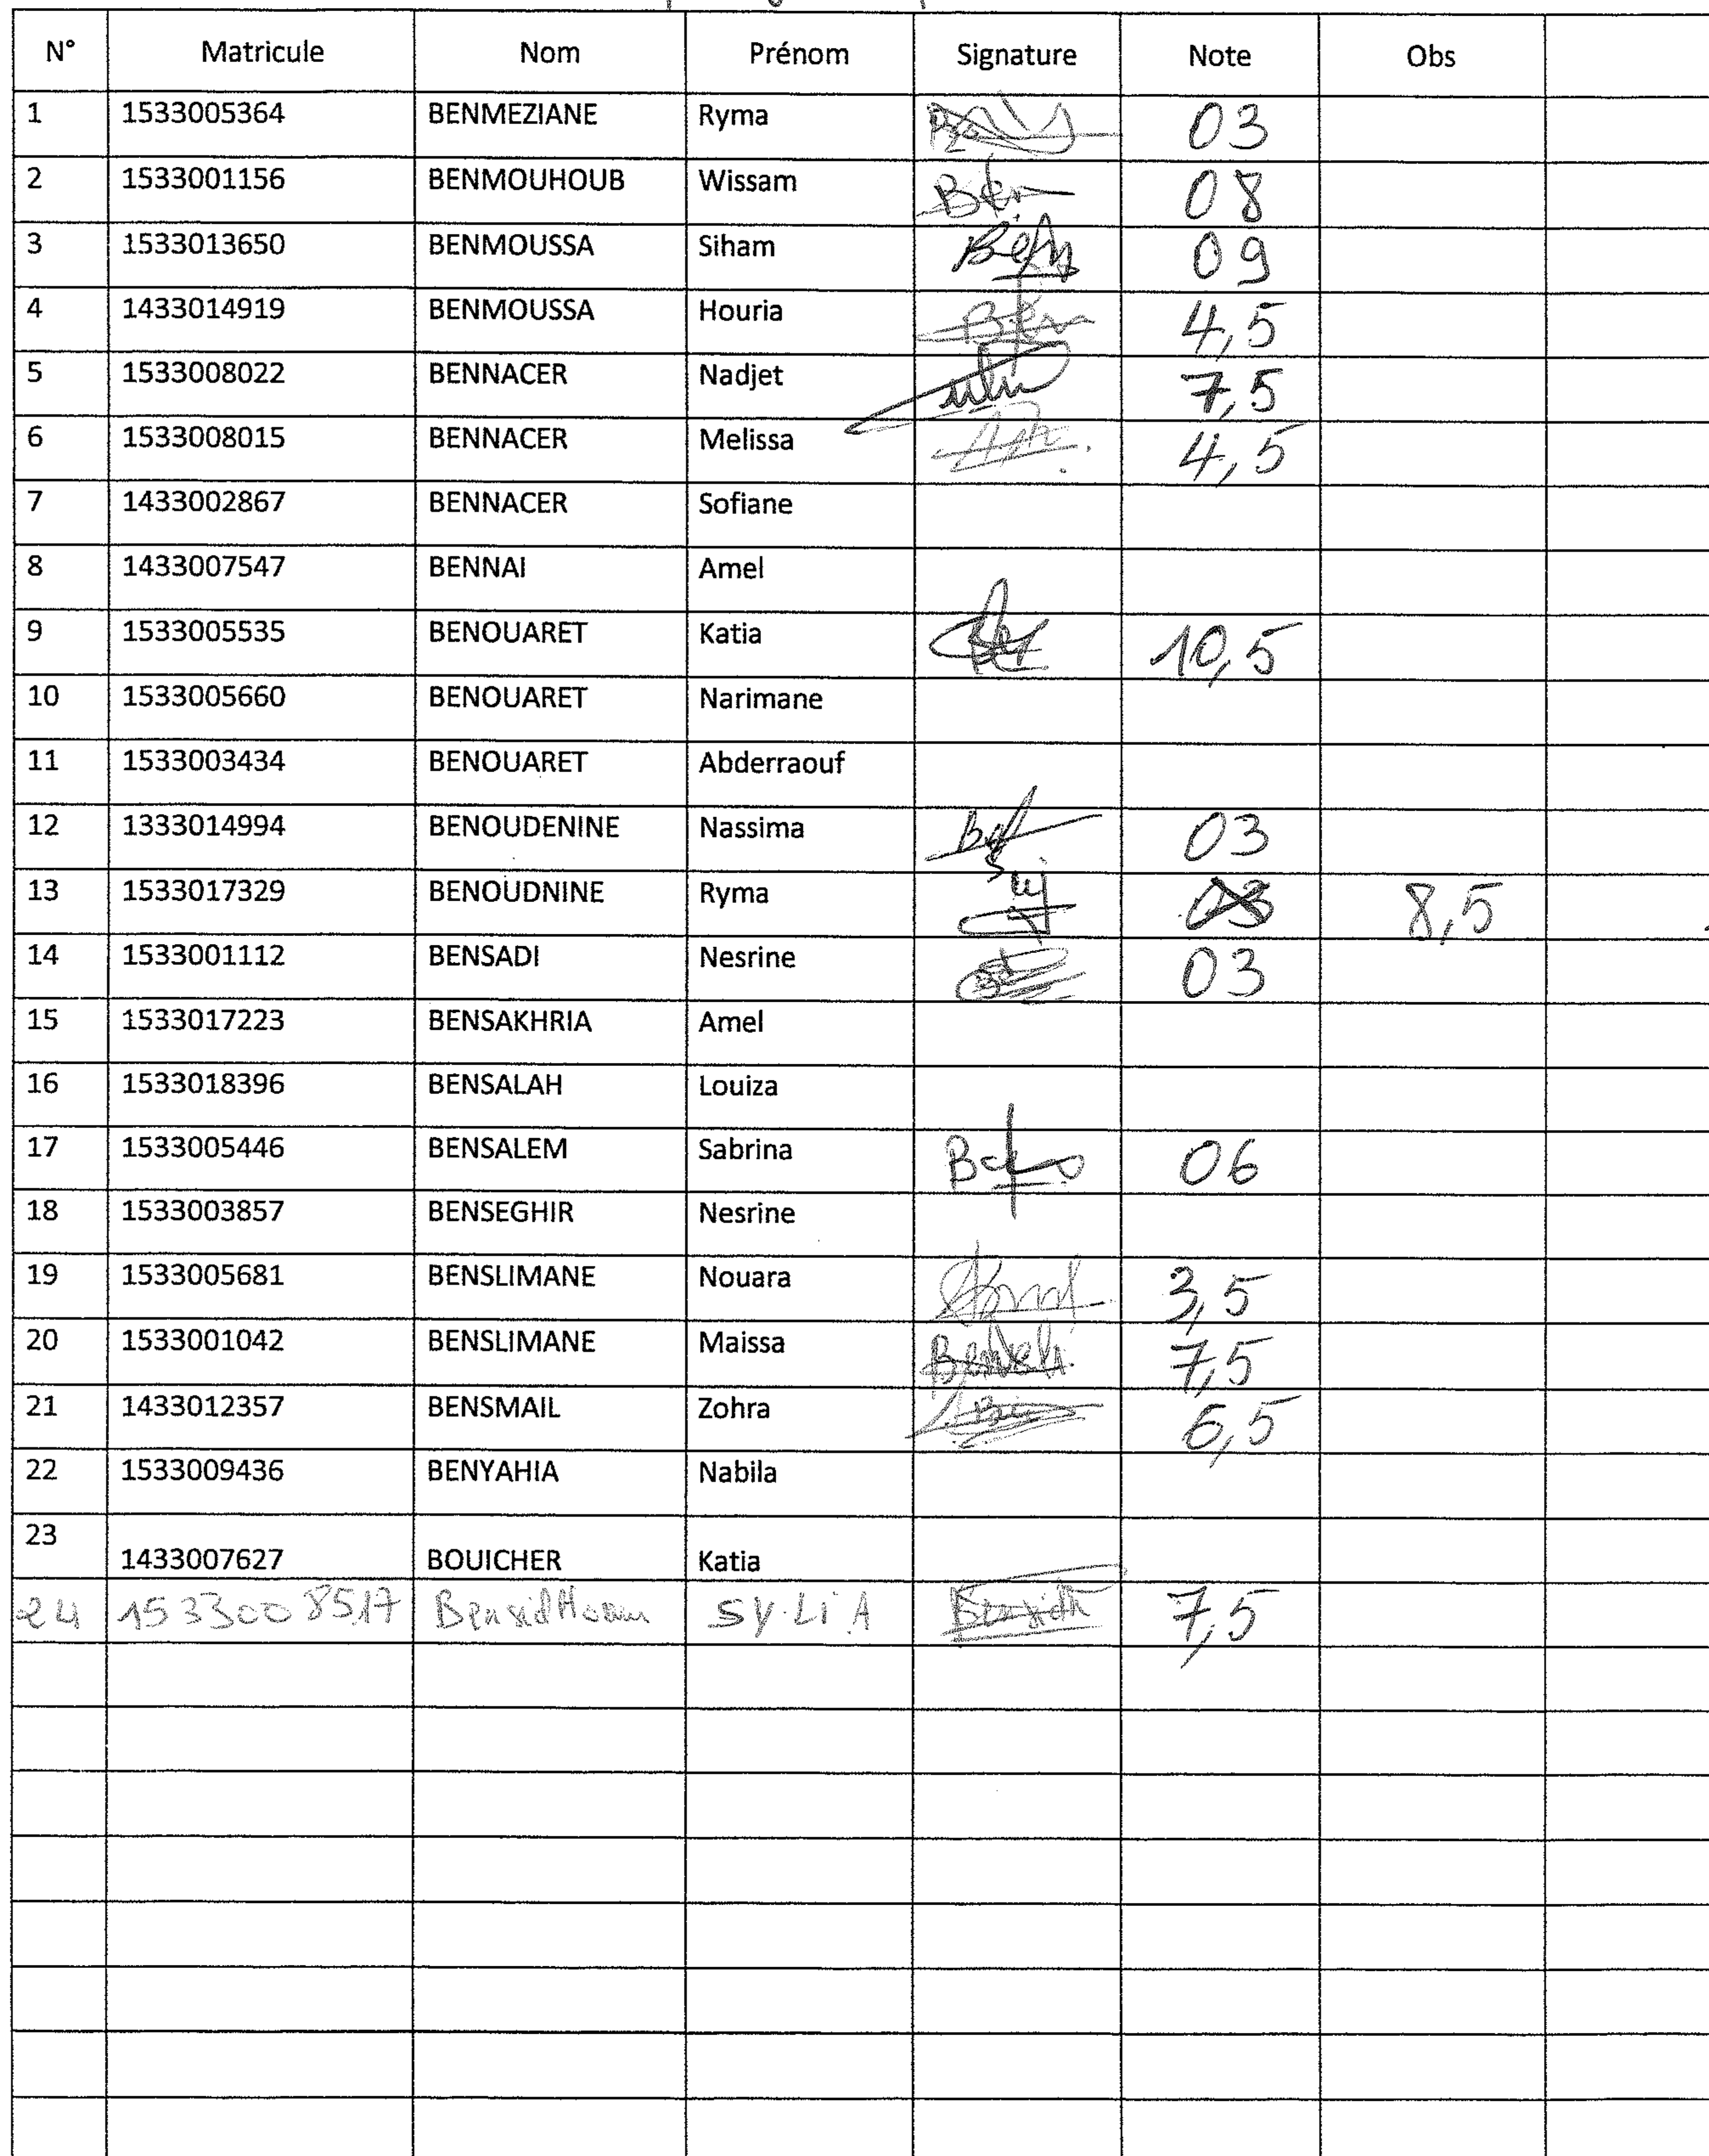 N° Matricule Nom Prénom Signature Note Obs
1 1533005364 BENMEZIANE Ryma 03
2 1533001156 BENMOUHOUB Wissam 08
3 1533013650 BENMOUSSA Siham 09
4 1433014919 BENMOUSSA Houria 4,5
5 1533008022 BENNACER Nadjet 7,5
6 1533008015 BENNACER Melissa 4,5
7 1433002867 BENNACER Sofiane
8 1433007547 BENNAI Amel
9 1533005535 BENOUARET Katia 10,5
10 1533005660 BENOUARET Narimane
11 1533003434 BENOUARET Abderraouf
12 1333014994 BENOUDENINE Nassima 03
13 1533017329 BENOUDNINE Ryma 03 8,5
14 1533001112 BENSADI Nesrine 03
15 1533017223 BENSAKHRIA Amel
16 1533018396 BENSALAH Louiza
17 1533005446 BENSALEM Sabrina 06
18 1533003857 BENSEGHIR Nesrine
19 1533005681 BENSLIMANE Nouara 3,5
20 1533001042 BENSLIMANE Maissa 7,5
21 1433012357 BENSMAIL Zohra 6,5
22 1533009436 BENYAHIA Nabila
23 1433007627 BOUICHER Katia
24 1533008517 SYLIA 7,5